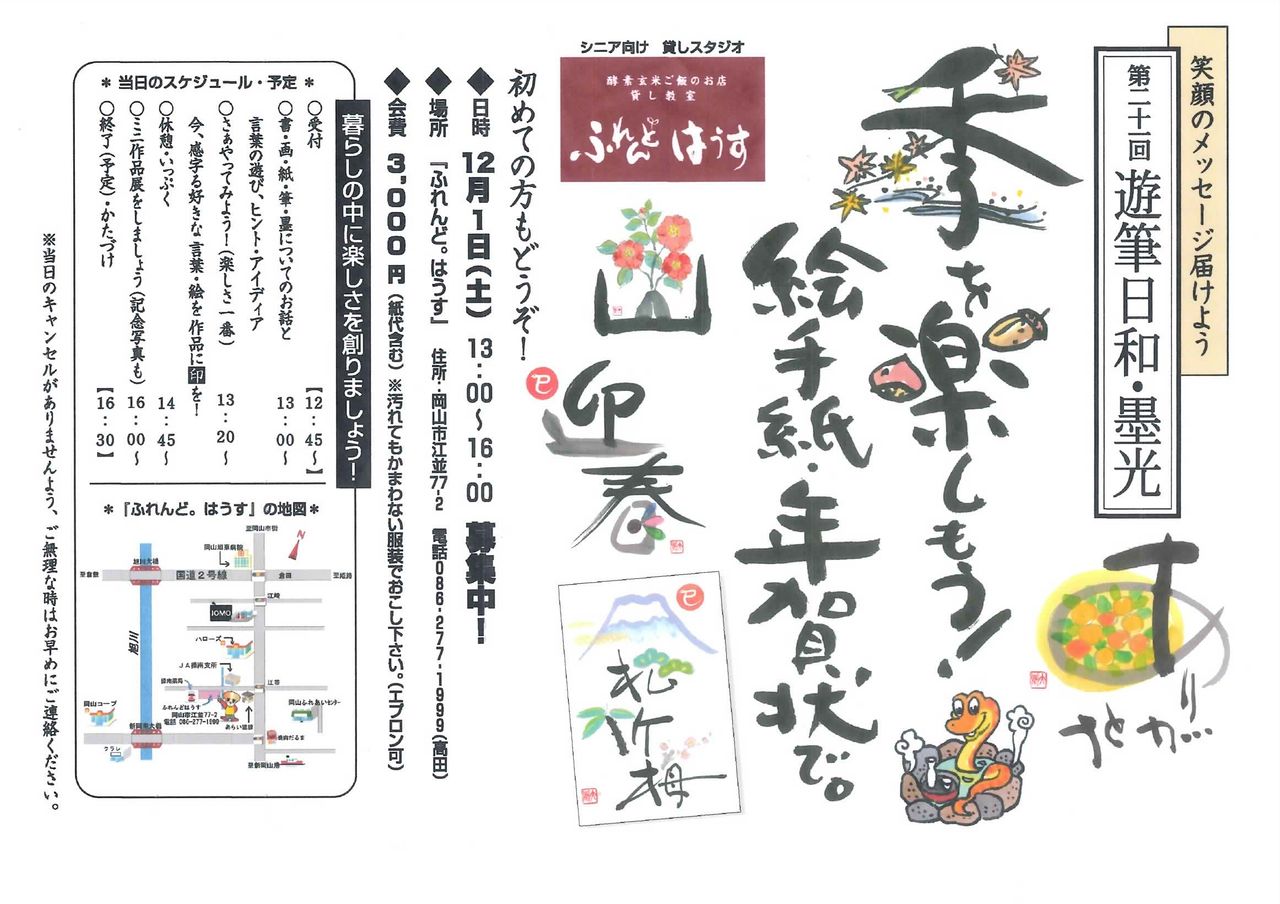 笑顔のメッセージ届けよう
第二十回 遊筆日和・墨光
季を楽しもう!
絵手紙・年賀状で。
シニア向け 貸しスタジオ
酵素玄米ご飯のお店
貸し教室
ふれんど はうす
山
卯春
巳
巳
松竹梅
初めての方もどうぞ!
◆日時 12月1日(土) 13:00~16:00 募集中!
◆場所 『ふれんど。はうす』 住所:岡山市江並77-2 電話086-277-1999(高田)
◆会費 3,000円(紙代含む) ※汚れてもかまわない服装でおこし下さい。(エプロン可)
暮らしの中に楽しさを創りましょう!
* 当日のスケジュール・予定 *
○受付 【12:45~】
○書・画・紙・筆・墨についてのお話と 13:00~
言葉の遊び、ヒント・アイディア
○さぁやってみよう!(楽しさ一番) 13:20~
今、感字る好きな言葉・絵を作品に印を!
○休憩・いっぷく 14:45~
○ミニ作品展をしましょう(記念写真も) 16:00~
○終了(予定)・かたづけ 【16:30】
*『ふれんど。はうす』の地図*
至岡山市街
N
岡山旭東病院
旭川大橋
至倉敷
国道2号線
倉田
至姫路
江崎
JOMO
ハローズ
旭川
JA操南支所
江並
ふれんどはうす
岡山市江並77-2
電話 086-277-1990
あらい歯科
岡山ふれあいセンター
岡山コープ
新岡南大橋
クラレ
焼肉だるま
至新岡山港
※当日のキャンセルがありませんよう、ご無理な時はお早めにご連絡ください。